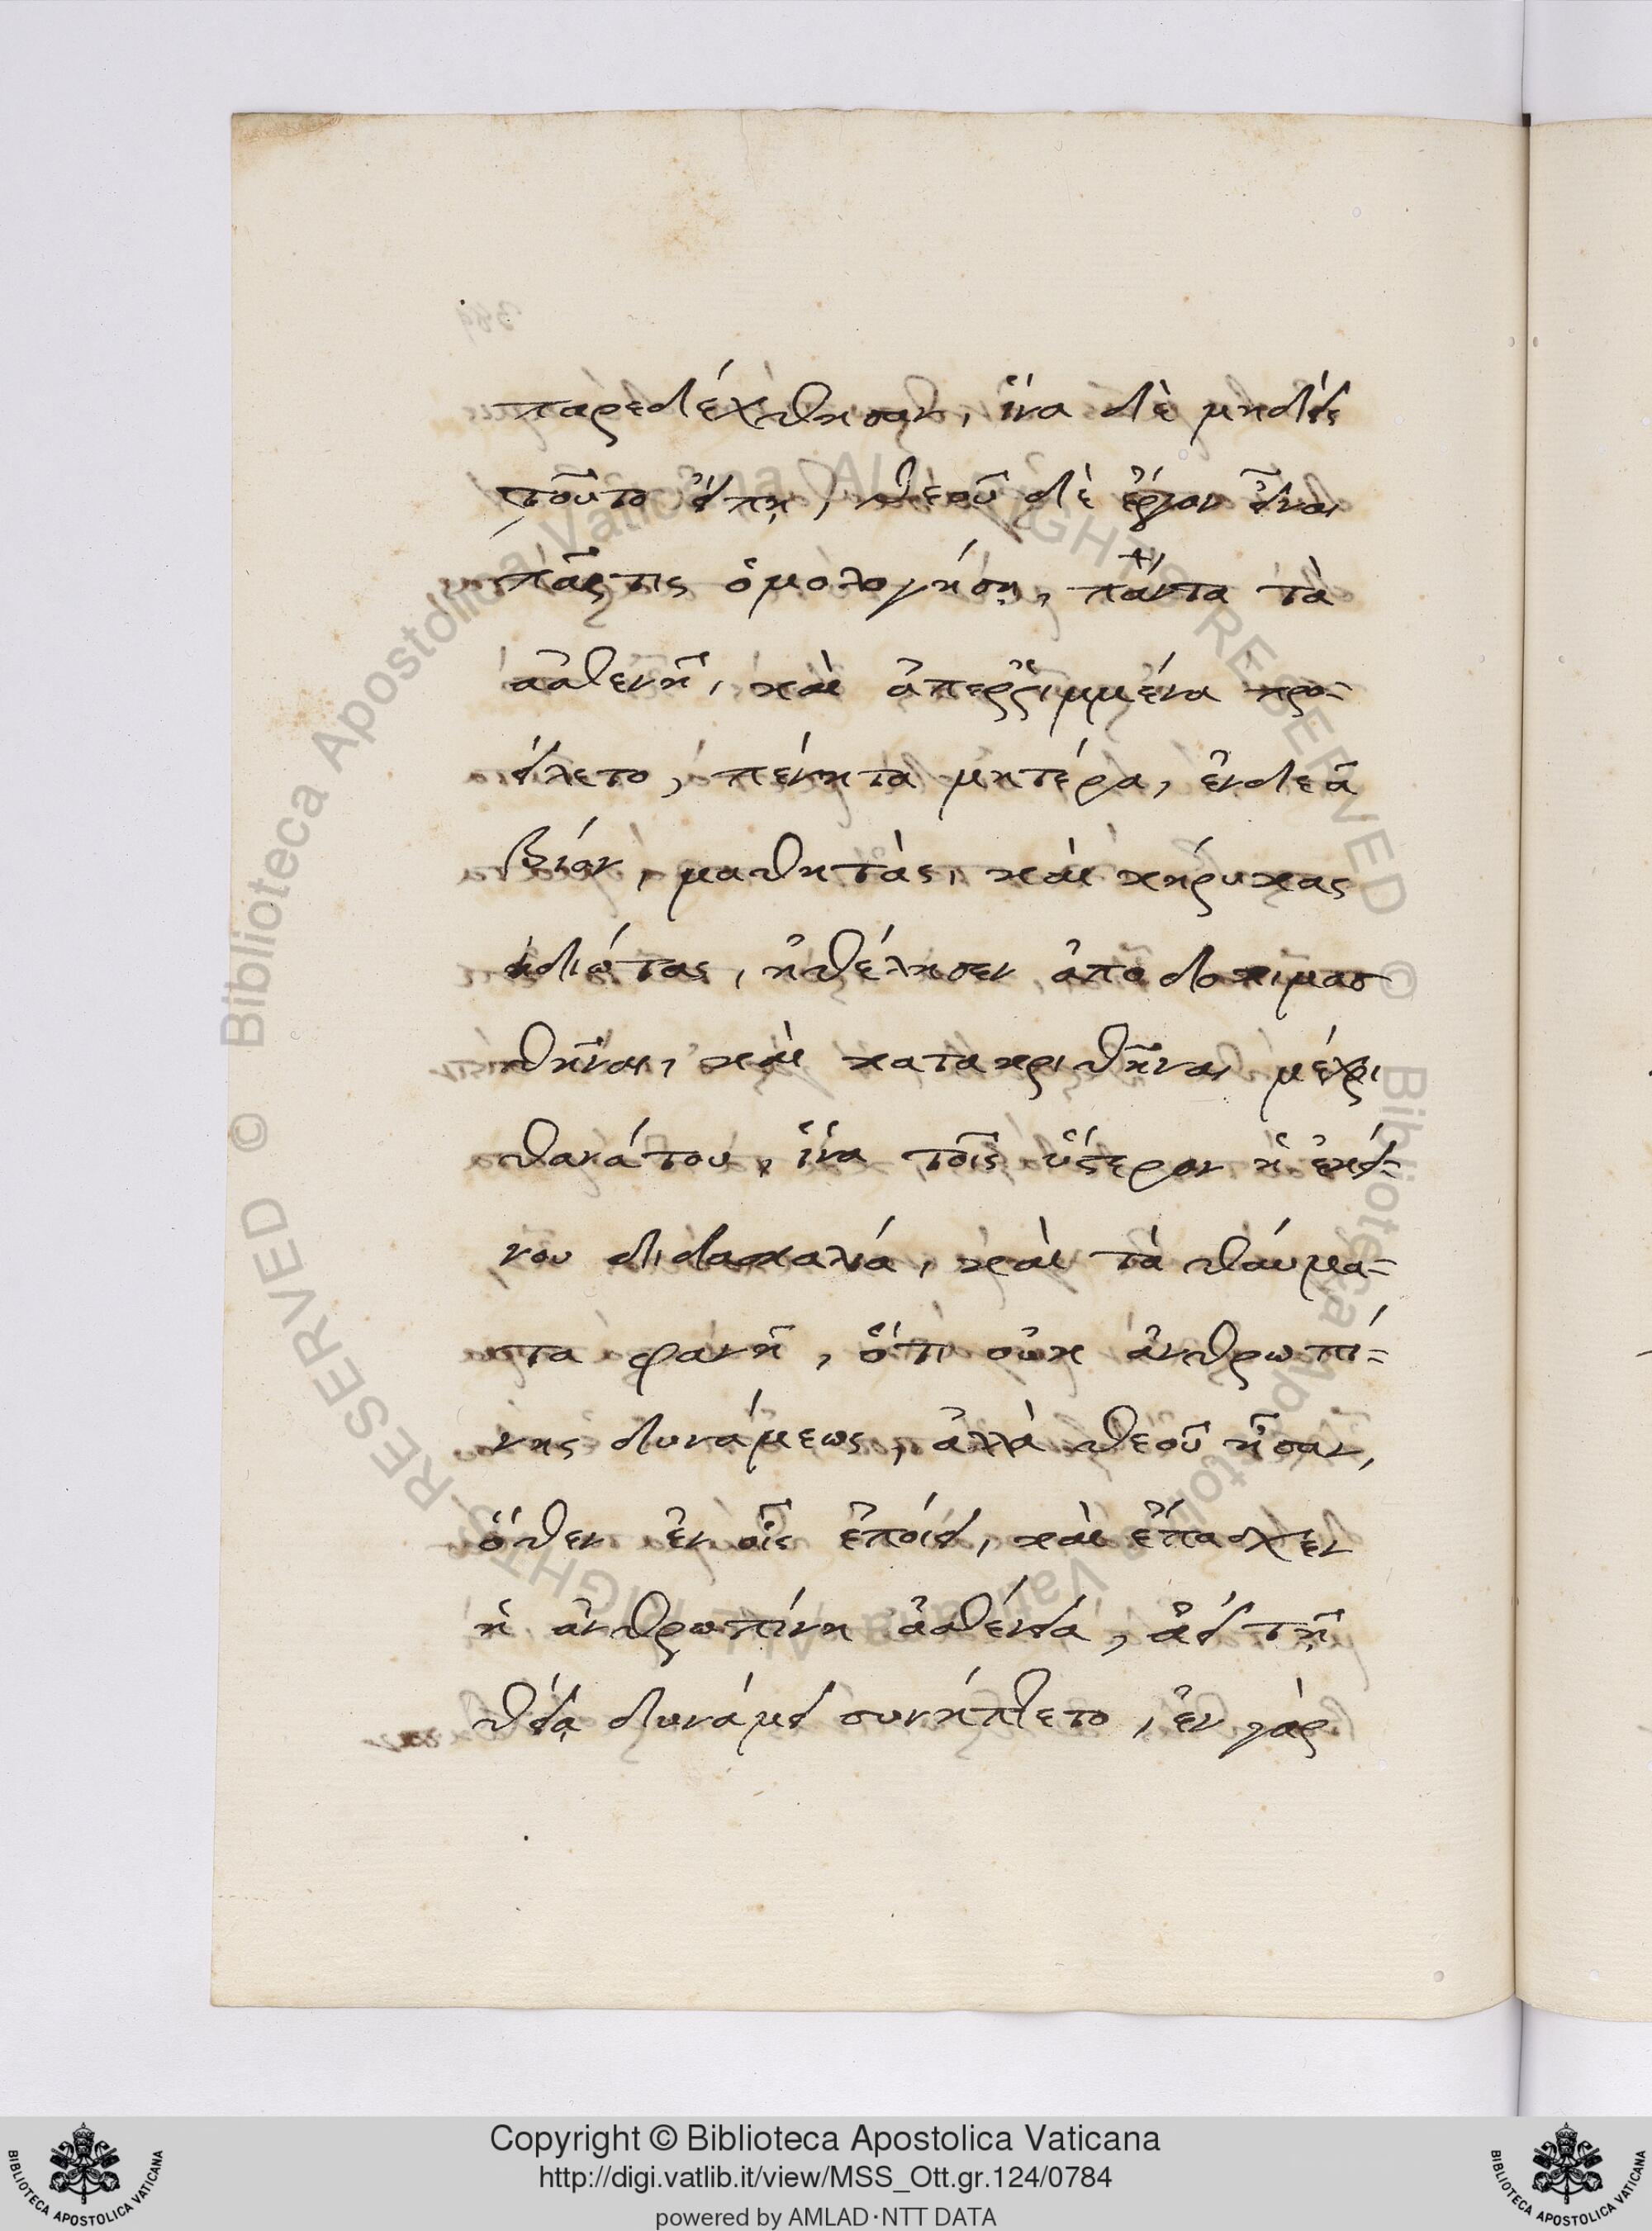 παρεδέχθησαν, ἵνα δὲ μηδεὶς
τοῦτο εἴπῃ, θεοῦ δὲ ἔργον εἶναι
πᾶς τις ὁμολογήσῃ, πάντα τὰ
ἀσθενῆ, καὶ ἀπερῤῥιμμένα προ-
είλετο, πένητα μητέρα, ἐνδεᾶ
βίον, μαθητὰς, καὶ κήρυκας
ἰδιώτας, ἠθέλησεν ἀποδοκιμασ
θῆναι, καὶ κατακριθῆναι μέχρι
θανάτου, ἵνα τοῖς ὕστερον ἡ ἐκεί-
νου διδασκαλία, καὶ τὰ θαύμα-
τα φανῆ, ὅτι οὐκ ἀνθρωπί-
νης δυνάμεως, ἀλλὰ θεοῦ ἦσαν,
ὅθεν ἐν οἷς ἐποίει, καὶ ἔπασχεν
ἡ ἀνθρωπίνη ἀσθένεια, ἀεὶ τῇ
θείᾳ δυνάμει συνήπτετο, ἐν γὰρ
Copyright © Biblioteca Apostolica Vaticana
http://digi.vatlib.it/view/MSS_Ott.gr.124/0784
powered by AMLAD·NTT DATA